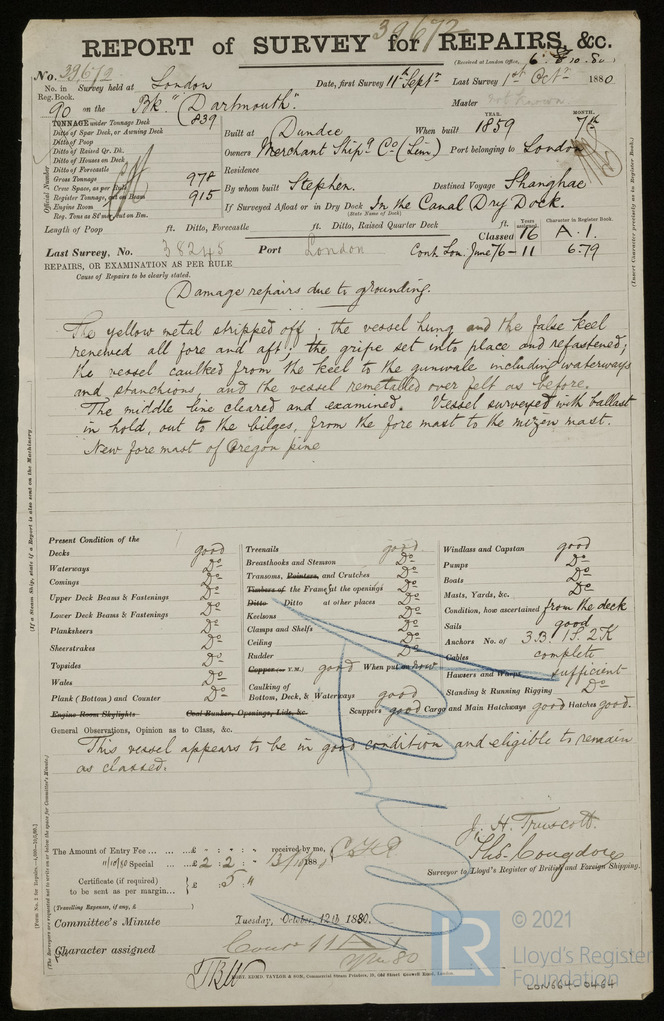 39672
REPORT of SURVEY for REPAIRS, &c.
(Received at London Office,
No. 39672
No. in Reg. Book.
Survey held at London
Date, first Survey 11th Septr
Last Survey 1st Octr 1880
90 on the Bk "Dartmouth".
Master
TONNAGE under Tonnage Deck 839
Ditto of Spar Deck, or Awning Deck
Ditto of Poop
Ditto of Raised Qr. Dk.
Ditto of Houses on Deck
Ditto of Forecastle
Gross Tonnage 978
Crew Space, as per Rule
Register Tonnage, cut on Beam 915
Engine Room
Reg. Tons as St'mr cut on Bm.
Official Number
Built at Dundee When built YEAR. 1859 MONTH. 7th
Owners Merchant Shipg Co (Lim) Port belonging to London
Residence
By whom built Stephen. Destined Voyage Shanghae
If Surveyed Afloat or in Dry Dock In the Canal Dry Dock.
(State Name of Dock)
Length of Poop ft. Ditto, Forecastle ft. Ditto, Raised Quarter Deck ft.
Years assigned. Character in Register Book.
Classed 16 A.1.
Last Survey, No. 38245 Port London
Cont. Lon. June 76-11 6-79
REPAIRS, OR EXAMINATION AS PER RULE
Cause of Repairs to be clearly stated.
Damage repairs due to grounding.
The yellow metal stripped off; the vessel hung and the false keel
renewed all fore and aft; the gripe set into place and refastened;
the vessel caulked from the keel to the gunwale including waterways
and stanchions, and the vessel remetalled over felt as before.
The middle line cleared and examined. Vessel surveyed with ballast
in hold, out to the bilges, from the fore mast to the mizen mast.
New fore mast of Oregon pine
Present Condition of the
Decks good
Waterways Do
Comings Do
Upper Deck Beams & Fastenings Do
Lower Deck Beams & Fastenings Do
Planksheers Do
Sheerstrakes Do
Topsides Do
Wales Do
Plank (Bottom) and Counter Do
Engine Room Skylights Coal Bunker, Openings, Lids, &c.
Treenails good
Breasthooks and Stemson Do
Transoms, Pointers, and Crutches Do
Timbers of the Frame at the openings Do
Ditto Ditto at other places Do
Keelsons Do
Clamps and Shelfs Do
Ceiling Do
Rudder Do
Copper (or Y.M.) good When put on now
Caulking of Bottom, Deck, & Waterways good
Scuppers good Cargo and Main Hatchways good Hatches good.
Windlass and Capstan good
Pumps Do
Boats Do
Masts, Yards, &c. Do
Condition, how ascertained from the deck
Sails good
Anchors No. of 3.B. 1S. 2K
Cables complete
Hawsers and Warps sufficient
Standing & Running Rigging Do
General Observations, Opinion as to Class, &c.
This vessel appears to be in good condition and eligible to remain
as classed.
J. H. Truscott.
Thos. Congdon
Surveyor to Lloyd's Register of British and Foreign Shipping.
The Amount of Entry Fee ... £ received by me,
11/10/80 Special ... £ 2 : 2 : 13/10/1880
Certificate (if required) to be sent as per margin... £ : 5 "
(Travelling Expenses, if any, £ )
Committee's Minute Tuesday, October 12th 1880.
Character assigned
LON664-0464
© 2021
LR
Lloyd's Register
Foundation